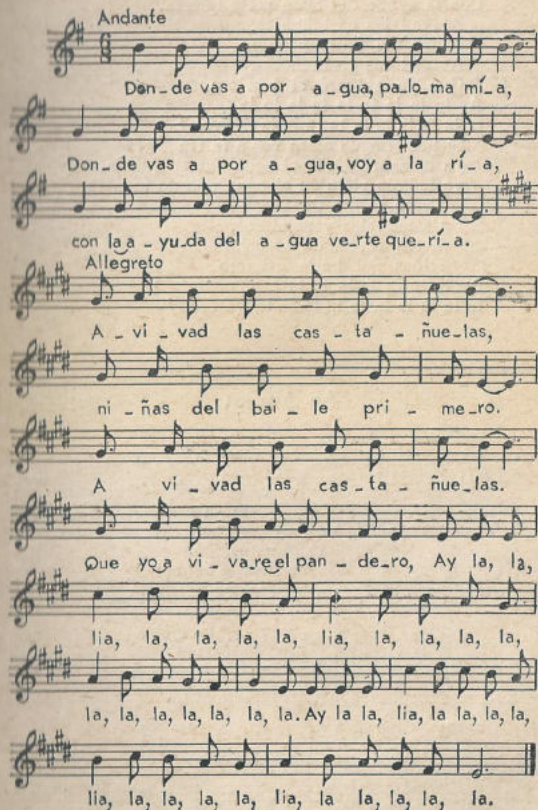 Andante
6
8
Don_de vas a por a_gua, pa_lo_ma mí_a,
Don_de vas a por a_gua, voy a la rí_a,
con la a_yu_da del a_gua ver_te que_rí_a.
Allegreto
A_vi_vad las cas_ta_ñue_las,
ni_ñas del bai_le pri_me_ro.
A vi_vad las cas_ta_ñue_las.
Que yo a vi_va_re el pan_de_ro, Ay la, la,
lia, la, la, la, la, lia, la, la, la, la,
la, la, la, la, la, la, la. Ay la la, lia, la la, la, la,
lia, la, la, la, la, lia, la la, la, la, la.